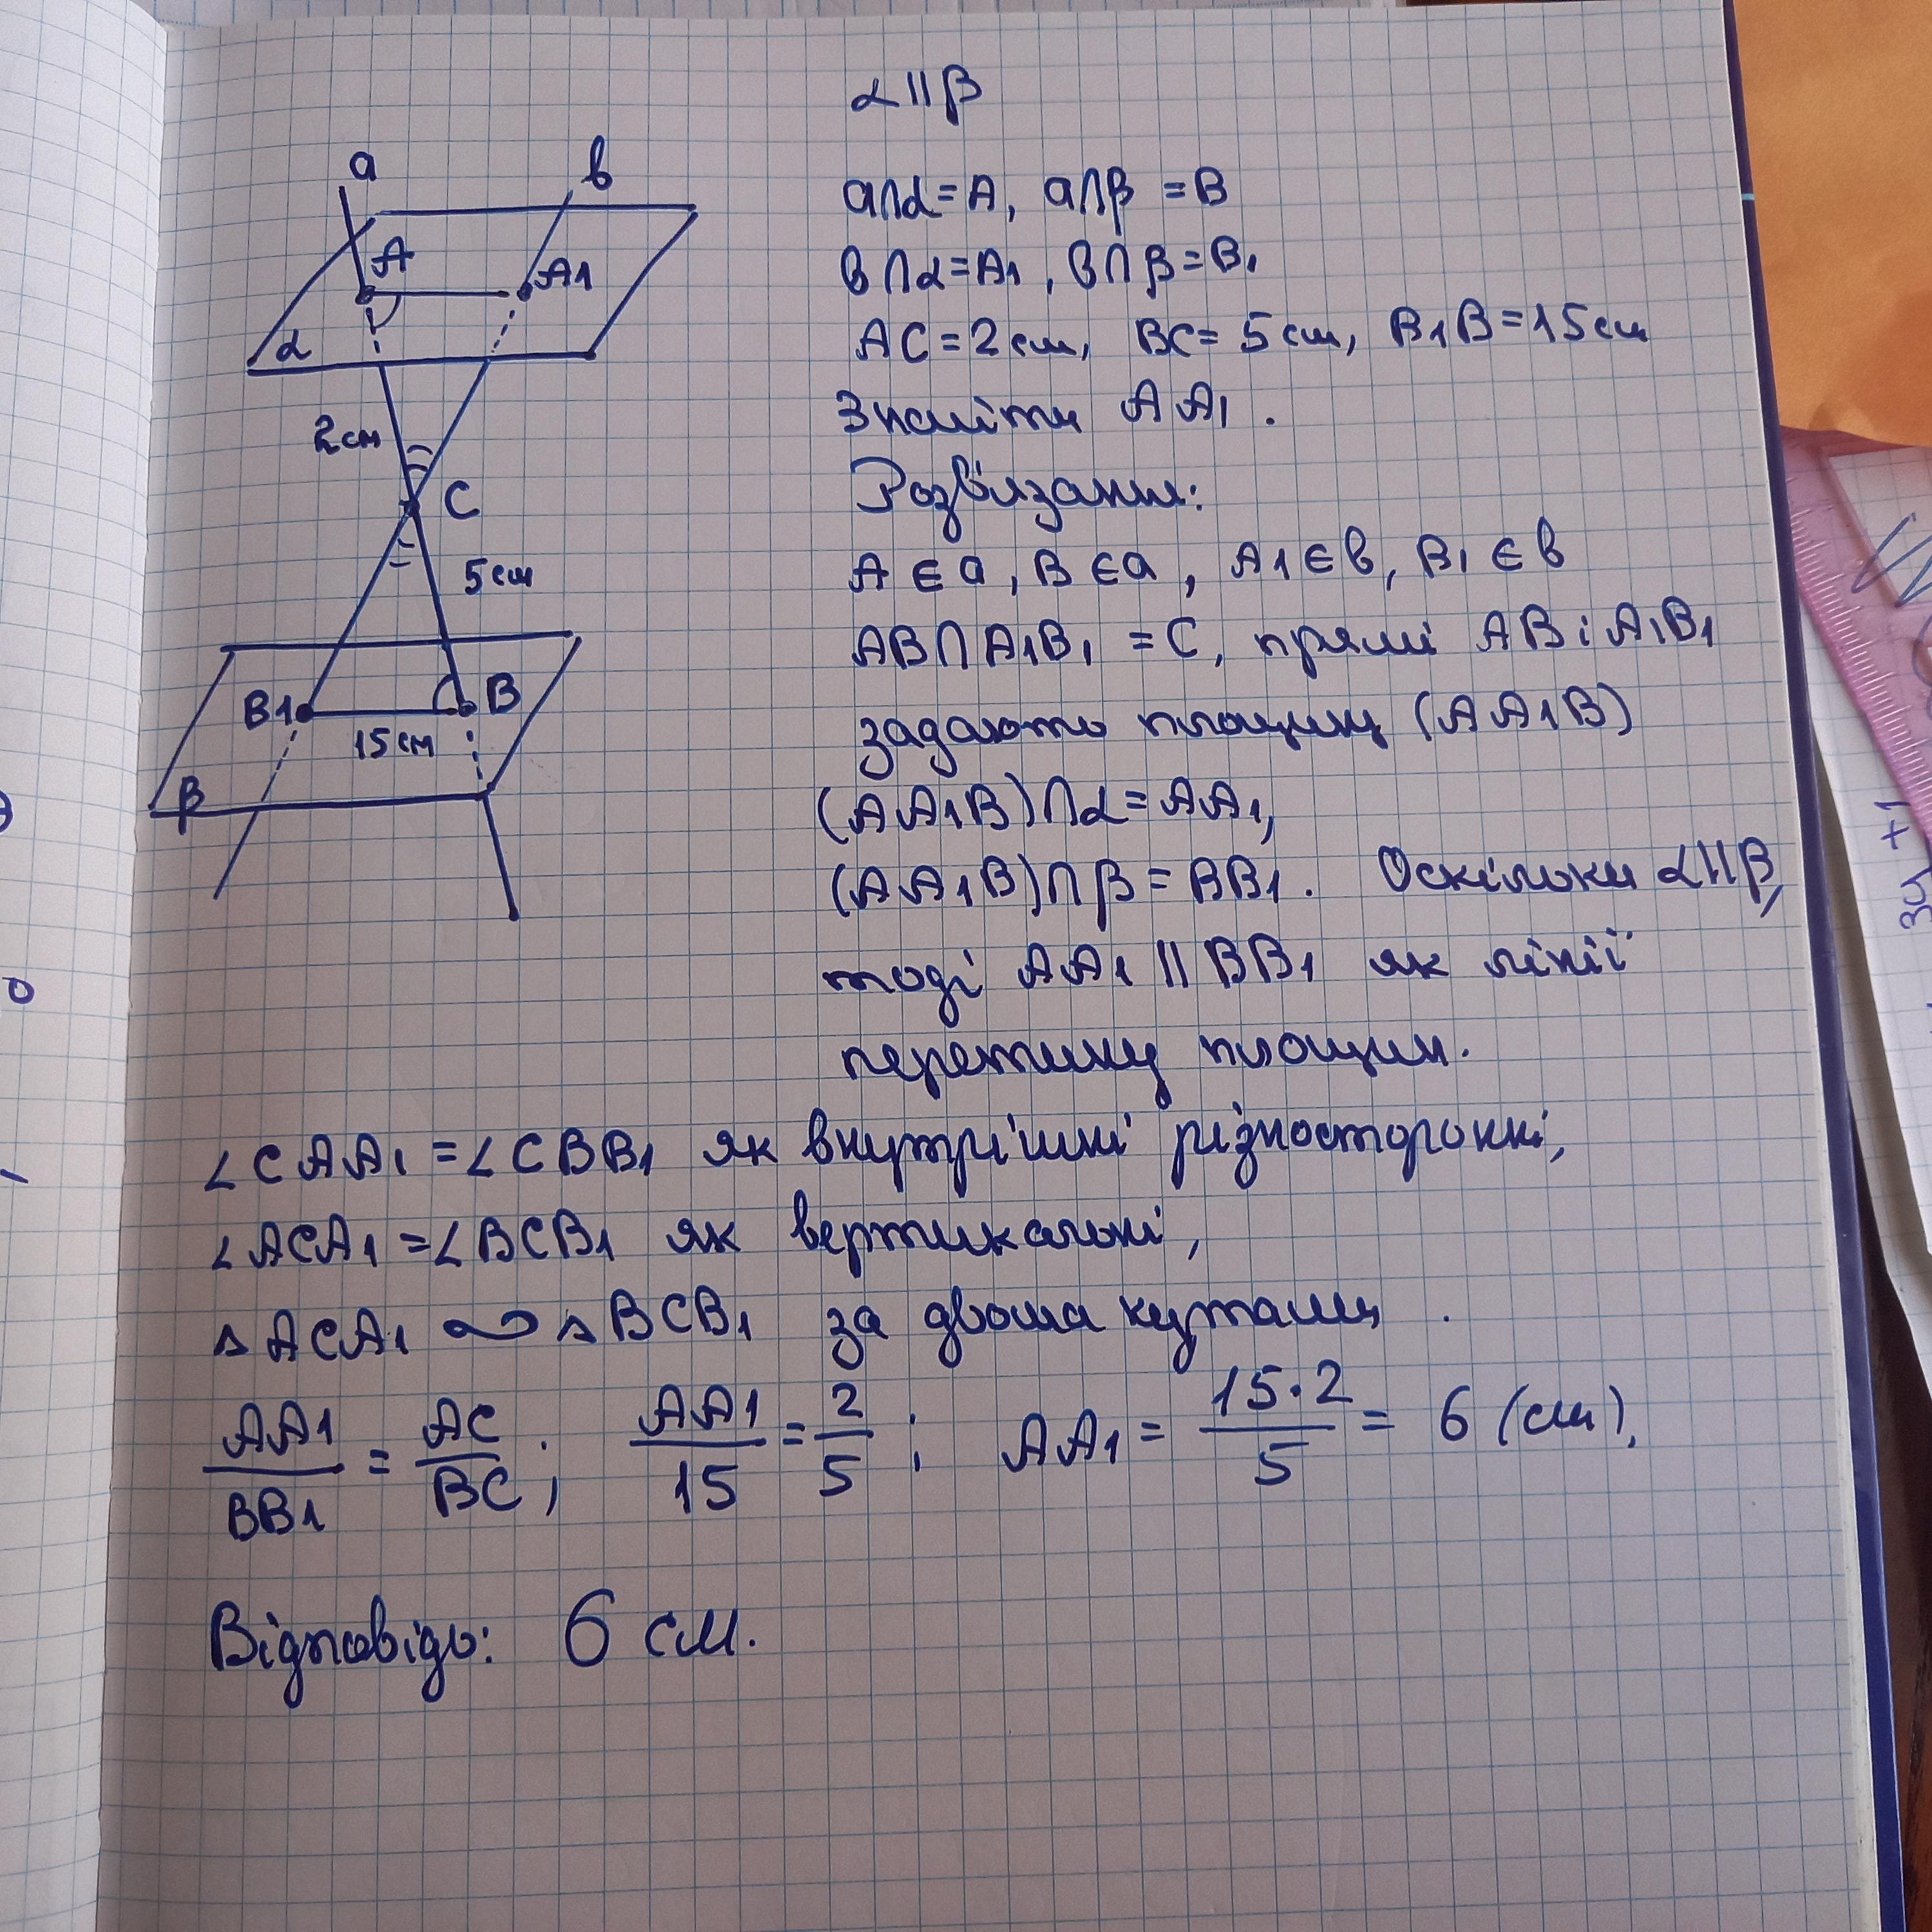 α||β
a
b
a∩α=A, a∩β=B
A
A1
b∩α=A1, b∩β=B1
α
AC=2см, BC=5см, B1B=15см
2см
Знайти AA1.
C
Розв'язання:
5см
A∈a, B∈a, A1∈b, B1∈b
AB∩A1B1=C, прямі AB і A1B1
B1
B
15см
задають площину (AA1B)
β
(AA1B)∩α=AA1,
(AA1B)∩β=BB1. Оскільки α||β,
тоді AA1||BB1 як лінії
перетину площин.
∠CAA1=∠CBB1 як внутрішні різносторонні,
∠ACA1=∠BCB1 як вертикальні,
△ACA1 ∾ △BCB1 за двома кутами.
AA1/BB1=AC/BC; AA1/15=2/5; AA1=15·2/5=6 (см).
Відповідь: 6 см.
34 +1